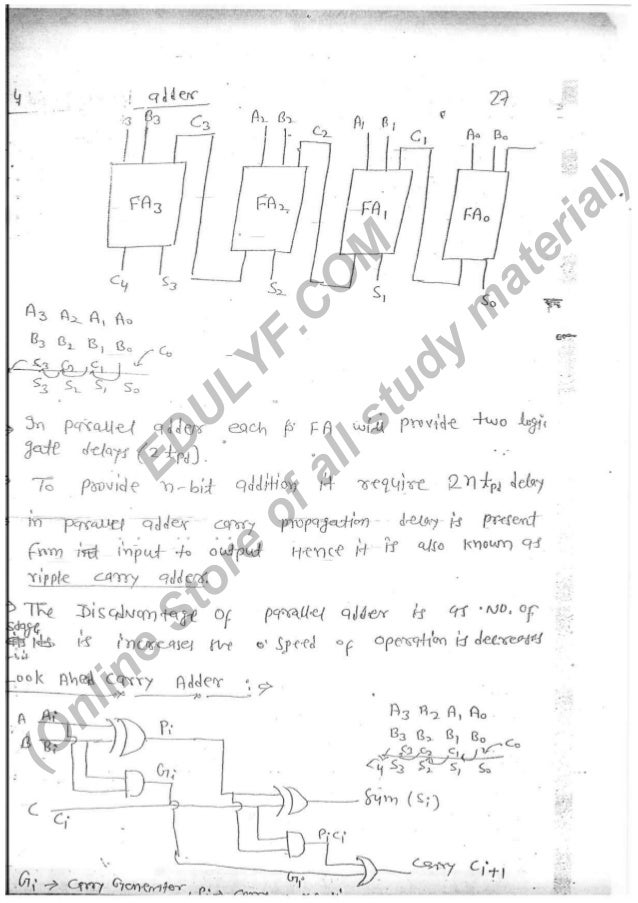 4 adder 27
3 B3 C3 A2 B2 C2 A1 B1 C1 A0 B0
FA3 FA2 FA1 FA0
C4 S3 S2 S1 S0
A3 A2 A1 A0
B3 B2 B1 B0 C0
S3 C2 C1
S3 S2 S1 S0
In parallel adder each FA will provide two logic
gate delays (2tpd).
To provide n-bit addition it require 2ntpd delay
in parallel adder carry propagation delay is present
from input to output Hence it is also known as
ripple carry adder.
The Disadvantage of parallel adder is as No. of
stage
is increases the speed of operation is decreases
Look Ahed Carry Adder :→
A Ai Pi
B Bi
Gi
C Ci
A3 A2 A1 A0
B3 B2 B1 B0 C0
S3 C2 C1
C4 S3 S2 S1 S0
Sum (Si)
PiCi
Gi
Carry Ci+1
Gi → Carry Generator, Pi → carry
EDULYF.COM
(Online Store of all study material)